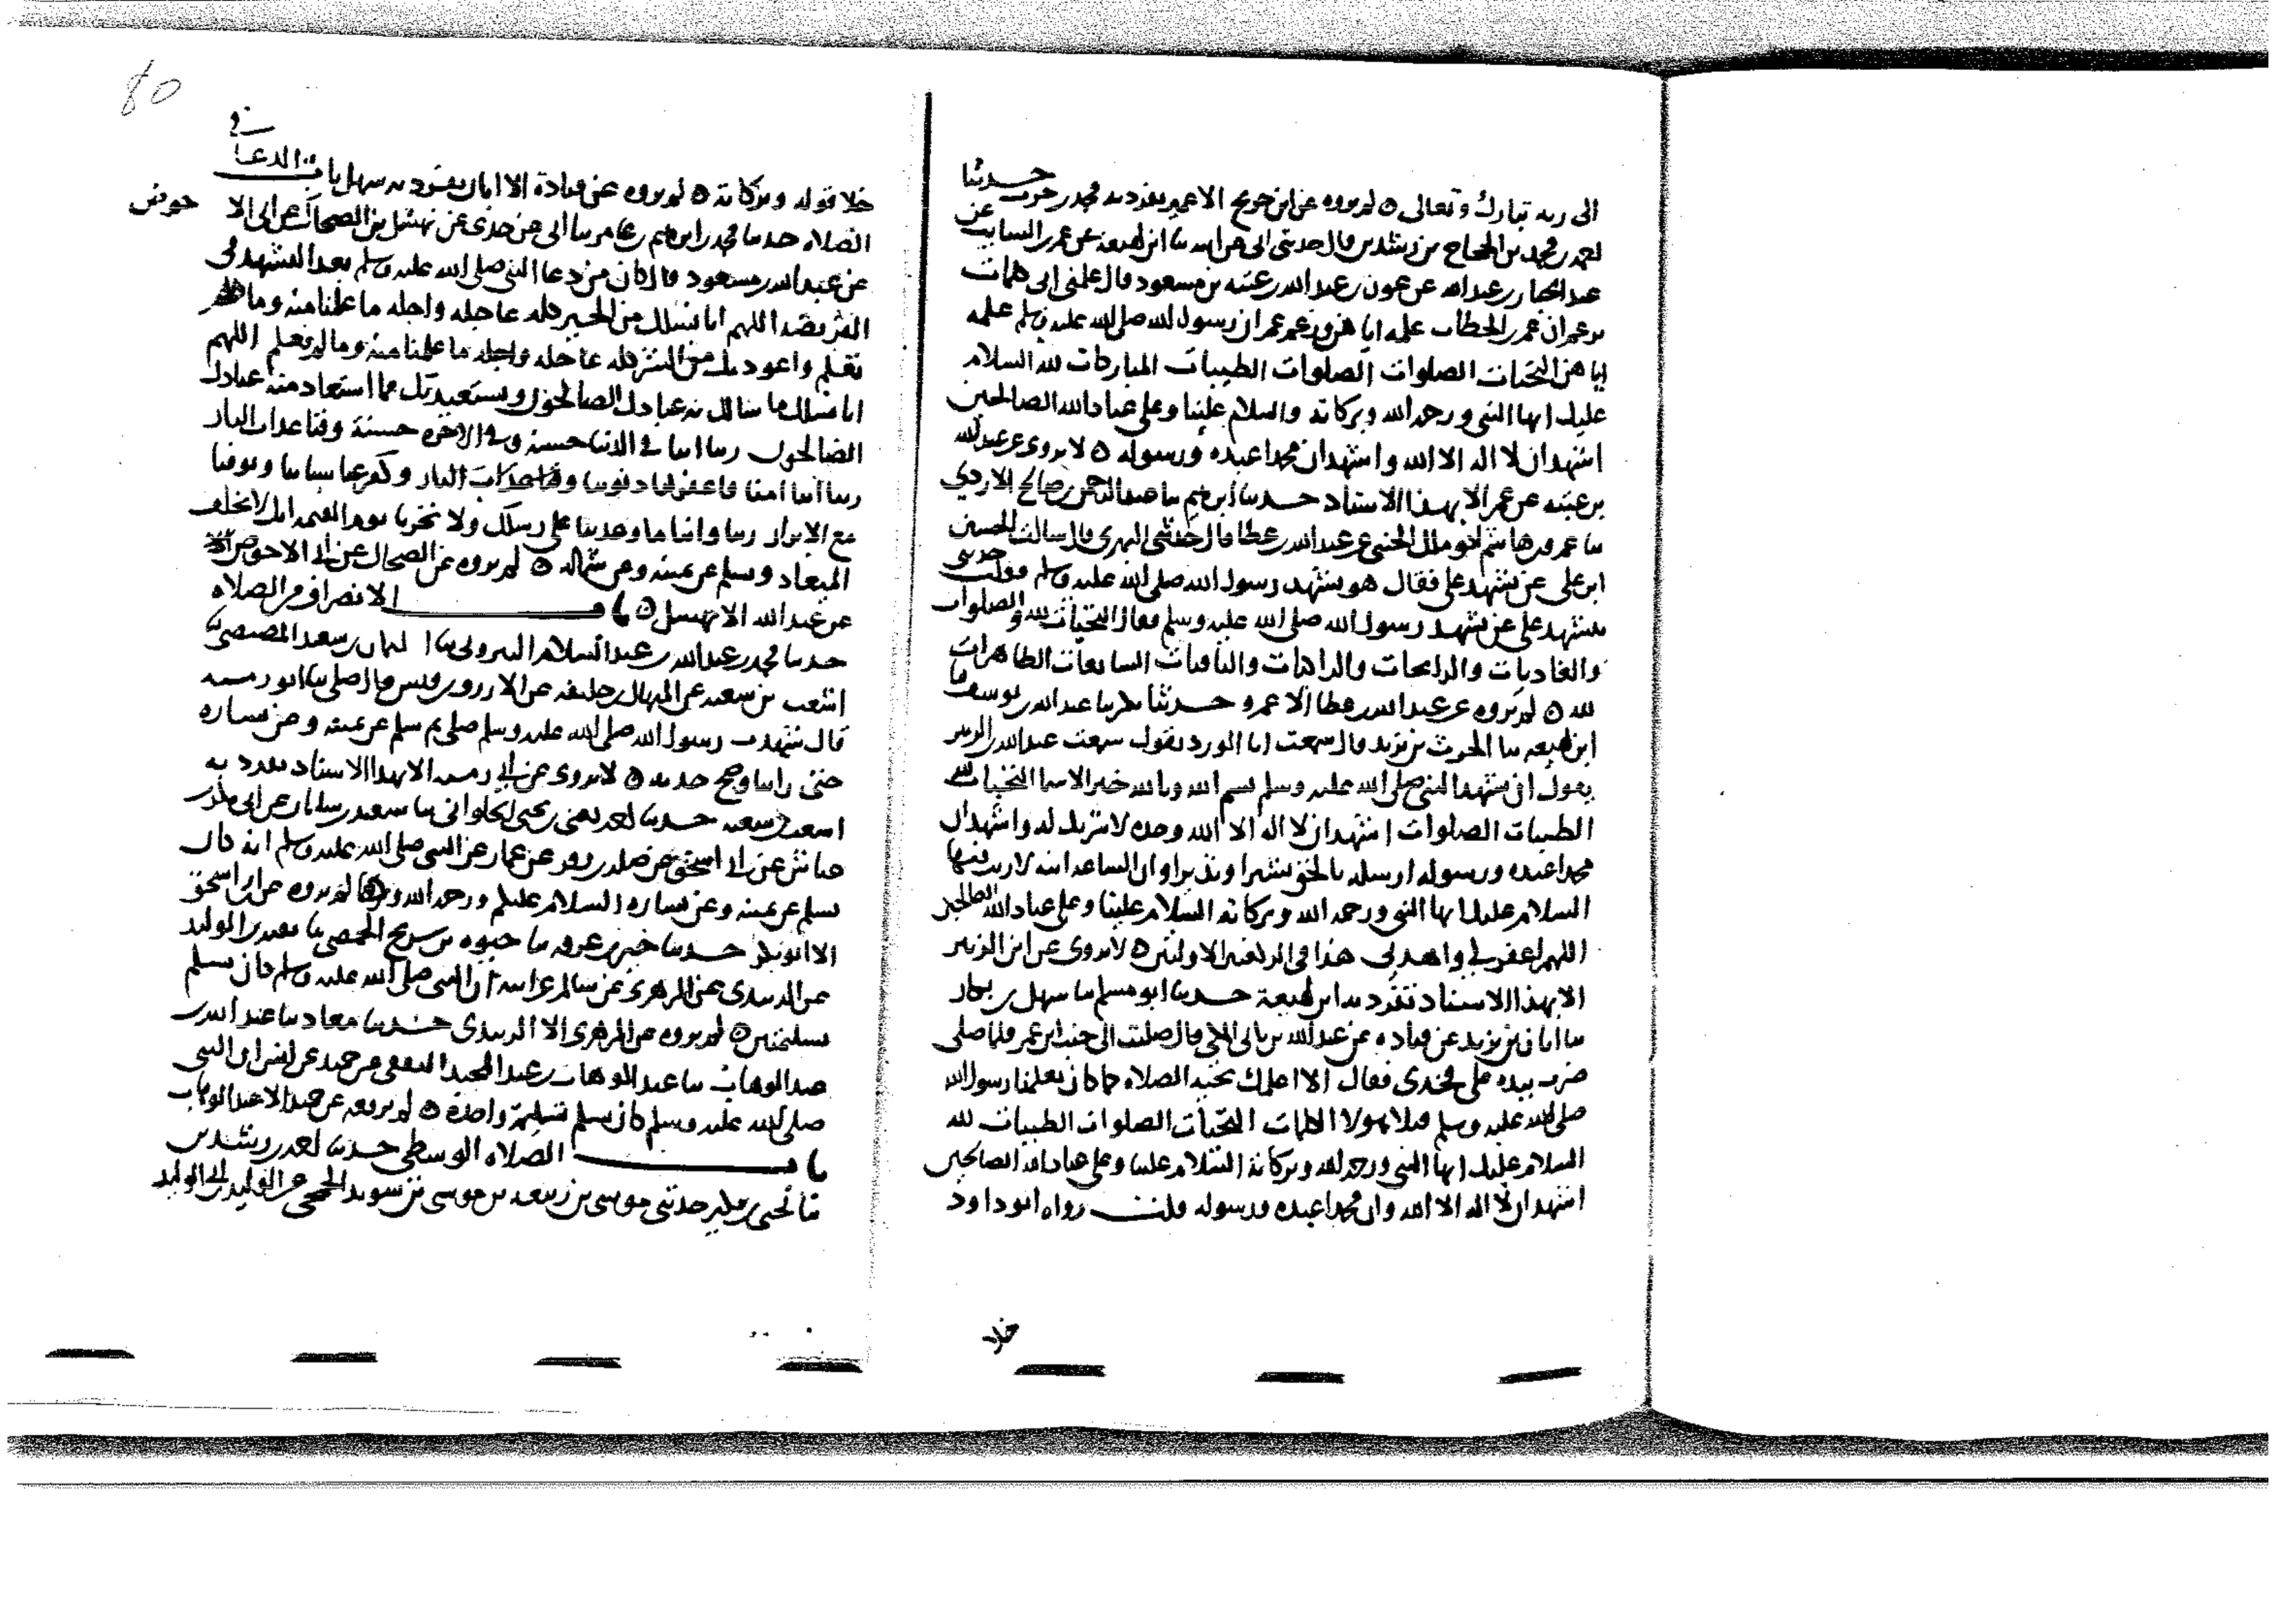 الى ربه تبارك وتعالى ٥ لم يروه عن ابن جريج الا عمير تفرد به محمد بن حرب حدثنا
احمد بن محمد بن الحجاج بن رشدين قال حدثنى ابى عن ابيه ثنا ابن لهيعة عن عمر بن السايب عن
عبد الجبار بن عبد الله عن عون بن عبد الله بن عتبه بن مسعود قال علمنى ابى كلمات
عمر بن الخطاب علمه اياهن وزعم عمر ان رسول الله صلى الله عليه وسلم علمه
اياهن التحيات الصلوات الصلوات الطيبات المباركات لله السلام
عليك ايها النبى ورحمه الله وبركاته والسلام علينا وعلى عباد الله الصالحين
اشهد ان لا اله الا الله واشهد ان محمدا عبده ورسوله ٥ لا يروى عن عبد الله
بن عتبه عن عمر الا بهذا الاسناد حدثنا ابرهيم ثنا عبد الرحمن بن صالح الازدي
ثنا عمرو بن هاشم ابو ملك الجنبى عن عبد الله بن عطا قال حدثنى البهزى قال سالت الحسين
ابن على عن تشهد على فقال هو تشهد رسول الله صلى الله عليه وسلم فقلت حدثنى
بتشهد على عن تشهد رسول الله صلى الله عليه وسلم فقال التحيات لله والصلوات
والغاديات والرايحات والزاكيات والناميات السابغات الطاهرات
لله ٥ لم يروه عن عبد الله بن عطا الا عمرو حدثنا بكر ثنا عبد الله بن يوسف ثنا
ابن لهيعه ثنا الحرث بن يزيد قال سمعت ابا الورد يقول سمعت عبد الله بن الزبير
يقول ان تشهد النبى صلى الله عليه وسلم بسم الله وبالله خير الاسما التحيات لله
الطيبات الصلوات اشهد ان لا اله الا الله وحده لا شريك له واشهد ان
محمدا عبده ورسوله ارسله بالحق بشيرا ونذيرا وان الساعه اتيه لا ريب فيها
السلام عليك ايها النبى ورحمه الله وبركاته السلام علينا وعلى عباد الله الصالحين
اللهم اغفر لى واهدنى هذا فى الركعتين الاولتين ٥ لا يروى عن ابن الزبير
الا بهذا الاسناد تفرد به ابن لهيعة حدثنا ابو مسلم ثنا سهل بن بكار
ثنا ابان بن يزيد عن قتاده عن عبد الله بن بابى المكى قال صليت الى جنب ابن عمر فلما صلى
ضرب بيده على فخذى فقال الا اعلمك تحيه الصلاه كما كان يعلمنا رسول الله
صلى الله عليه وسلم فتلا هولا الكلمات التحيات الصلوات الطيبات لله
السلام عليك ايها النبى ورحمه الله وبركاته السلام علينا وعلى عباد الله الصالحين
اشهد ان لا اله الا الله وان محمدا عبده ورسوله قلت رواه ابو داود
خلا
خلا قوله وبركاته ٥ لم يروه عن قتادة الا ابان تفرد به سهل باب الدعا فى
الصلاه حدثنا محمد بن ابرهيم بن عامر ثنا ابى عن جدى عن نهشل عن الضحاك عن ابى الا حوص
عن عبد الله بن مسعود قال كان من دعا النبى صلى الله عليه وسلم بعد التشهد فى
الفريضه اللهم انا نسلك من الخير كله عاجله واجله ما علمنا منه وما لم
نعلم واعوذ بك من الشر كله عاجله واجله ما علمنا منه وما لم نعلم اللهم
انا نسلك ما سالك به عبادك الصالحون ونستعيذ بك مما استعاذ منه عبادك
الصالحون ربنا اتنا فى الدنيا حسنة وفى الاخره حسنة وقنا عذاب النار
ربنا اننا امنا فاغفر لنا ذنوبنا وقنا عذاب النار وكفر عنا سياتنا وتوفنا
مع الابرار ربنا واتنا ما وعدتنا على رسلك ولا تخزنا يوم القيمه انك لا تخلف
الميعاد ويسلم عن يمينه وعن شماله ٥ لم يروه عن الضحاك عن ابى الاحوص
عن عبد الله الا نهشل ٥ باب الانصراف من الصلاه
حدثنا محمد بن عبد الله بن عبد السلام البيروتى ثنا بن سعد المصيصى ثنا
اشعب بن سعيد عن المنهال بن خليفه عن الازرق بن قيس قال صلى بنا ابو رمثه
قال شهدت رسول الله صلى الله عليه وسلم صلى ثم سلم عن يمينه وعن يساره
حتى راينا وضح خديه ٥ لا يروى عن ابى رمثه الا بهذا الاسناد تفرد به
اشعث بن سعيد حدثنا احمد بن يحيى الحلوانى ثنا سعيد بن سليمان عن ابى بكر بن
عياش عن ابى اسحق عن صله بن زفر عن عمار عن النبى صلى الله عليه وسلم انه كان
يسلم عن يمينه وعن يساره السلام عليكم ورحمه الله وبركاته لم يروه عن ابى اسحق
الا ابو بكر حدثنا خير بن عرفه ثنا حيوه بن شريح الحمصى ثنا بقيه بن الوليد
عن الزبيدى عن الزهرى عن سالم عن ابيه ان النبى صلى الله عليه وسلم كان يسلم
تسليمتين ٥ لم يروه عن الزهرى الا الزبيدى حدثنا معاذ ثنا عبد الله بن
عبد الوهاب ثنا عبد الوهاب بن عبد المجيد الثقفى عن حميد عن انس ان النبى
صلى الله عليه وسلم كان يسلم تسليمة واحدة ٥ لم يرفعه عن حميد الا عبد الوهاب
باب الصلاه الوسطى حدثنا احمد بن رشدين
ثنا يحيى بن بكير حدثنى موسى بن ربيعه بن موسى بن سويد الجمحى عن الوليد بن ابى الوليد